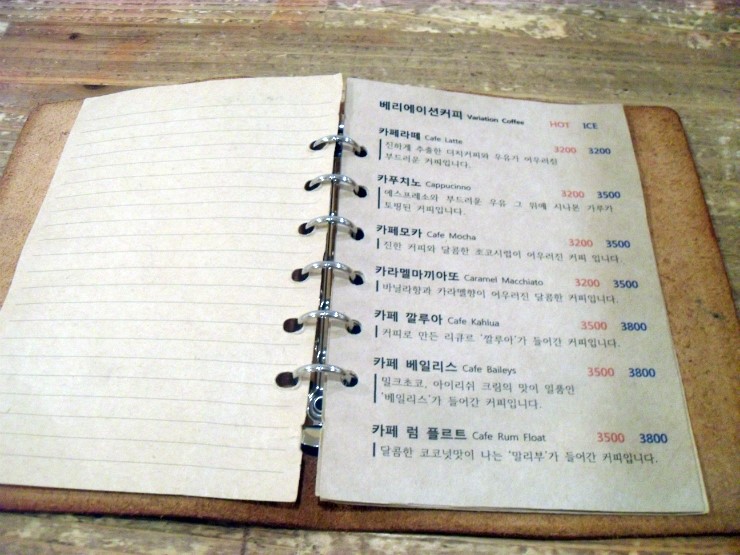 베리에이션커피 Variation Coffee HOT ICE
카페라떼 Cafe Latte 3200 3200
진하게 추출한 더치커피와 우유가 어우러진
부드러운 커피입니다.
카푸치노 Cappucinno 3200 3500
에스프레소와 부드러운 우유 그 위에 시나몬 가루가
토핑된 커피입니다.
카페모카 Cafe Mocha 3200 3500
진한 커피와 달콤한 초코시럽이 어우러진 커피 입니다.
카라멜마끼아또 Caramel Macchiato 3200 3500
바닐라향과 카라멜향이 어우러진 달콤한 커피입니다.
카페 깔루아 Cafe Kahlua 3500 3800
커피로 만든 리큐르 '깔루아'가 들어간 커피입니다.
카페 베일리스 Cafe Baileys 3500 3800
밀크초코, 아이리쉬 크림의 맛이 일품인
'베일리스'가 들어간 커피입니다.
카페 럼 플르트 Cafe Rum Float 3500 3800
달콤한 코코넛맛이 나는 '말리부'가 들어간 커피입니다.